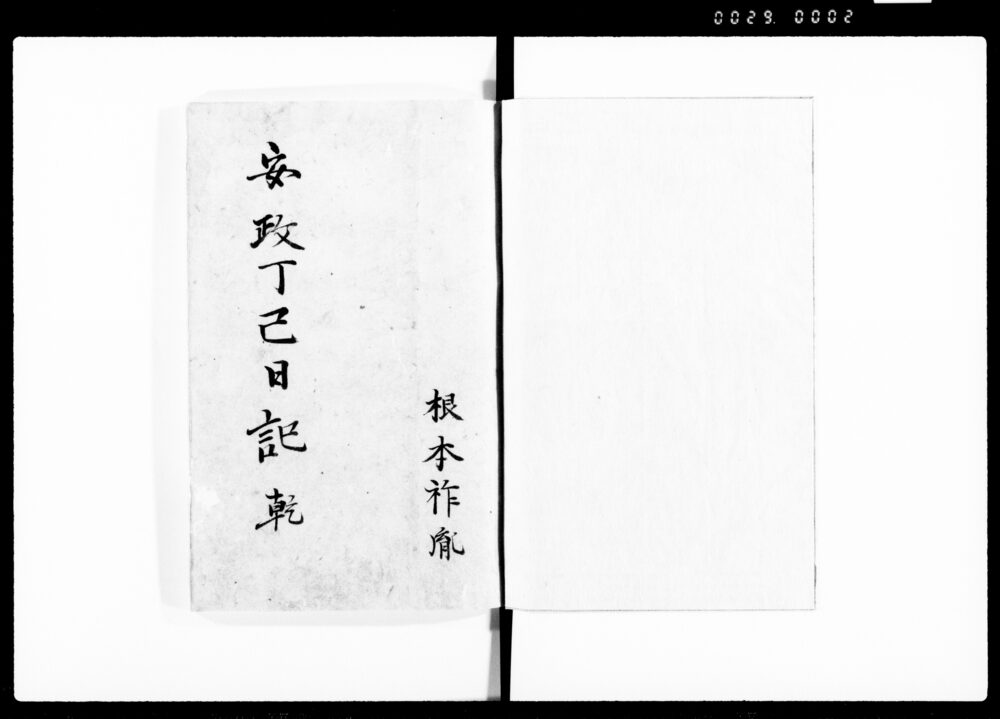 0029. 0002
根本祚胤
安政丁巳日記 乾